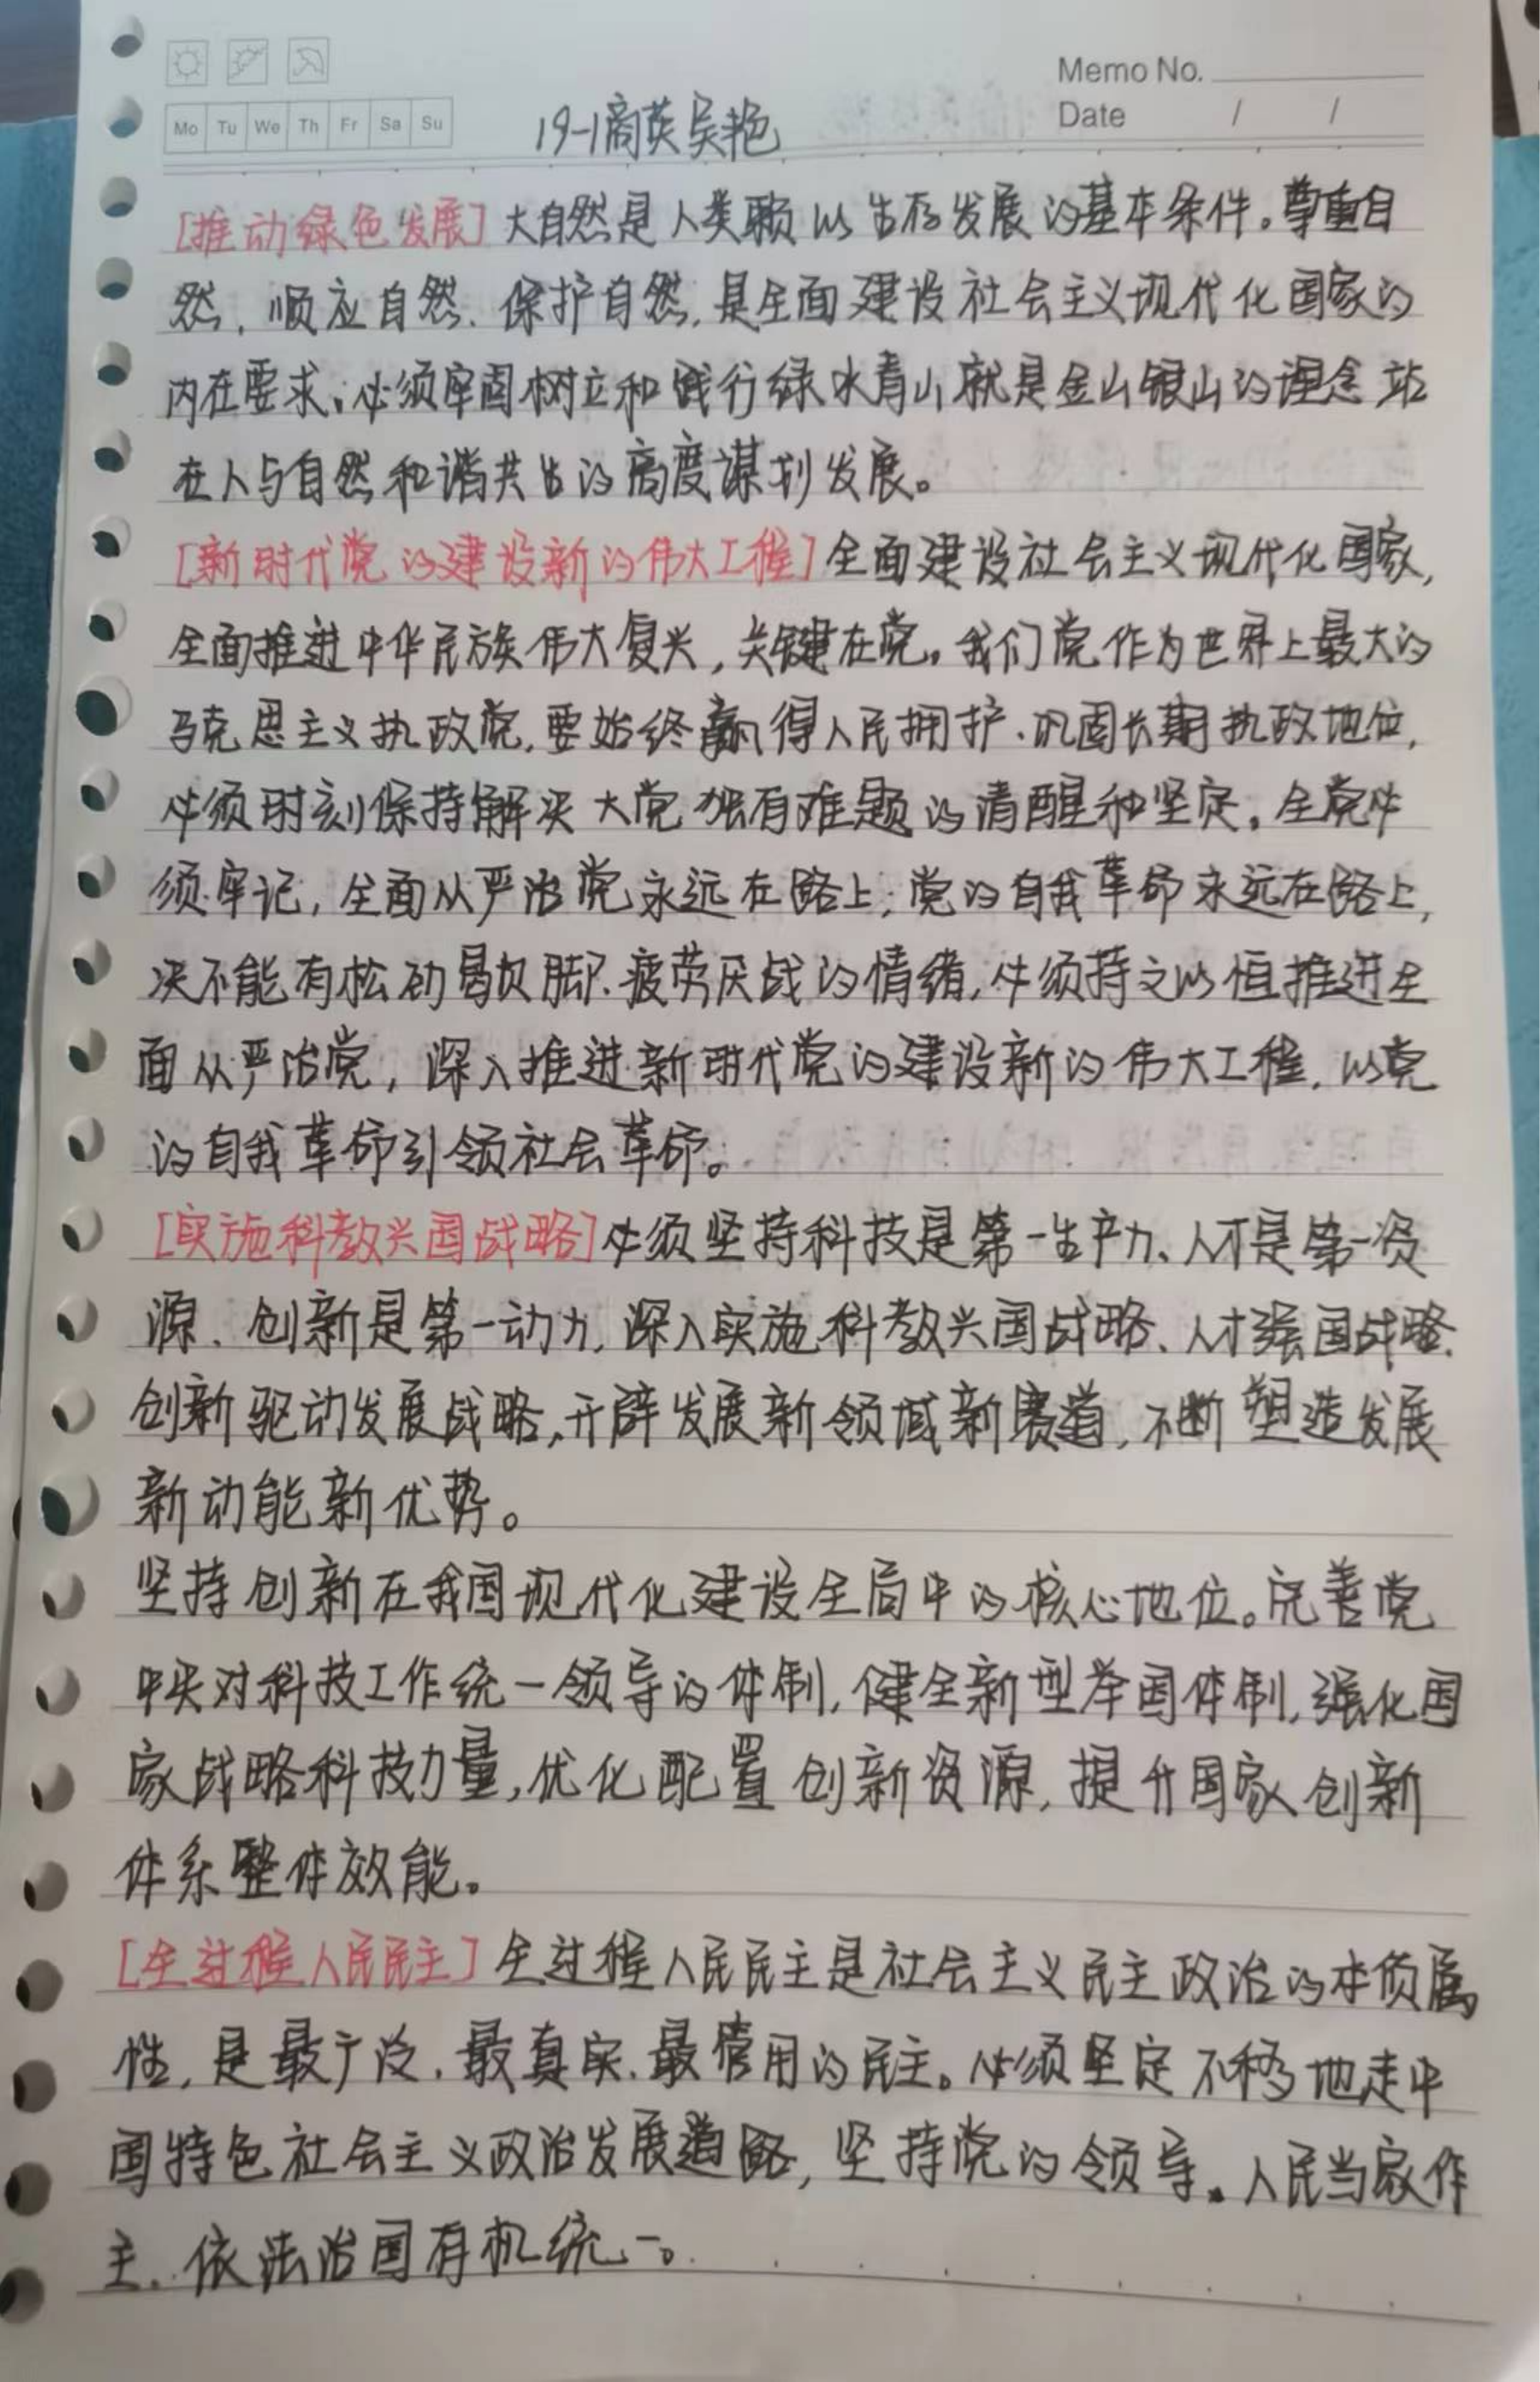 Memo No.
Mo Tu We Th Fr Sa Su
Date / /
19-1商英吴艳
[推动绿色发展]大自然是人类赖以生存发展的基本条件。尊重自
然、顺应自然、保护自然,是全面建设社会主义现代化国家的
内在要求,必须牢固树立和践行绿水青山就是金山银山的理念 站
在人与自然和谐共生的高度谋划发展。
[新时代党的建设新的伟大工程]全面建设社会主义现代化国家,
全面推进中华民族伟大复兴,关键在党。我们党作为世界上最大的
马克思主义执政党,要始终赢得人民拥护、巩固长期执政地位,
必须时刻保持解决大党独有难题的清醒和坚定。全党必
须牢记,全面从严治党永远在路上,党的自我革命永远在路上,
决不能有松劲歇脚、疲劳厌战的情绪,必须持之以恒推进全
面从严治党,深入推进新时代党的建设新的伟大工程,以党
的自我革命引领社会革命。
[实施科教兴国战略]必须坚持科技是第一生产力、人才是第一资
源、创新是第一动力,深入实施科教兴国战略、人才强国战略、
创新驱动发展战略,开辟发展新领域新赛道,不断塑造发展
新动能新优势。
坚持创新在我国现代化建设全局中的核心地位。完善党
中央对科技工作统一领导的体制,健全新型举国体制,强化国
家战略科技力量,优化配置创新资源,提升国家创新
体系整体效能。
[全过程人民民主]全过程人民民主是社会主义民主政治的本质属
性,是最广泛、最真实、最管用的民主。必须坚定不移地走中
国特色社会主义政治发展道路,坚持党的领导、人民当家作
主、依法治国有机统一。